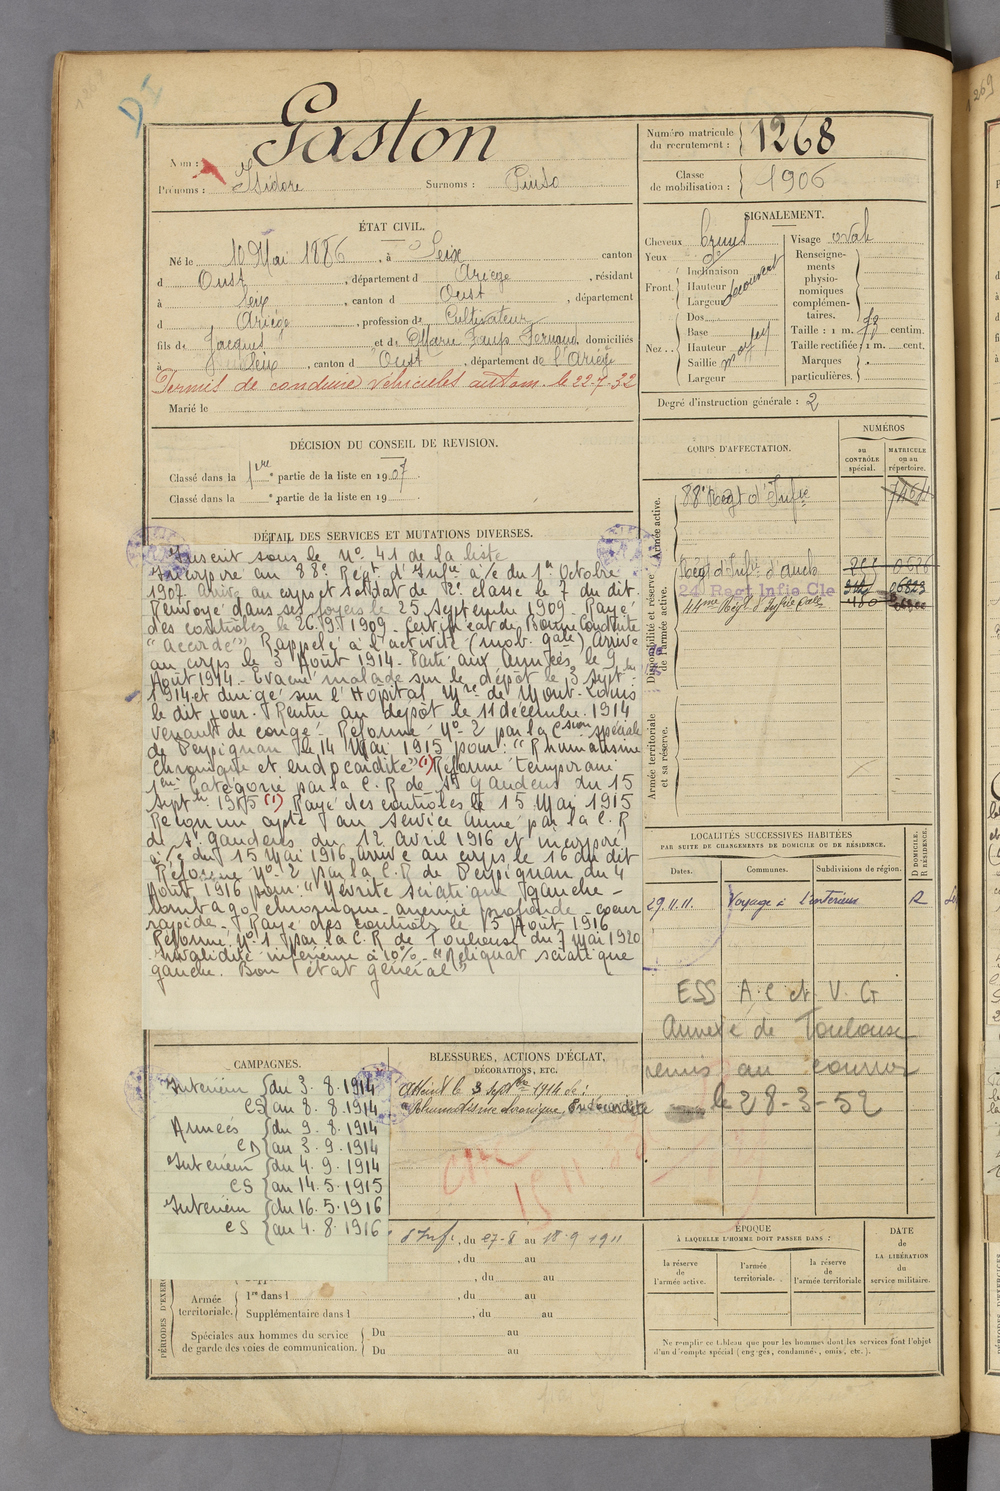 Gaston
Nom :
Prénoms : Isidore Surnoms :
Numéro matricule du recrutement : 1268
Classe de mobilisation : 1906
ÉTAT CIVIL.
Né le 10 Mai 1886, à Seix canton
d Oust, département d Ariège, résidant
à Seix, canton d Oust, département
d Ariège, profession de Cultivateur
fils de Jacques et de Marie domiciliés
à Seix, canton d Oust, département de l'Ariège
Permis de conduire véhicules autom. le 22-7-32
Marié le
SIGNALEMENT.
Cheveux
Yeux
Front. Inclinaison
Hauteur découvert
Largeur
Nez. Dos
Base
Hauteur moyen
Saillie
Largeur
Visage oval
Renseignements physionomiques complémentaires.
Taille : 1 m. centim.
Taille rectifiée : 1 m. cent.
Marques particulières.
Degré d'instruction générale : 2
DÉCISION DU CONSEIL DE REVISION.
Classé dans la 1ère partie de la liste en 1907
Classé dans la e partie de la liste en 19
CORPS D'AFFECTATION.
NUMÉROS
au CONTRÔLE spécial.
MATRICULE ou au répertoire.
Armée active.
88e Regt d'Infie
Disponibilité et réserve de l'armée active.
Regt d'Infie d'Auch
24 Regt Infie Cle
44me Regt d'Infie Cale
Armée territoriale et sa réserve.
DÉTAIL DES SERVICES ET MUTATIONS DIVERSES.
Inscrit sous le No 41 de la liste
Incorporé au 88e Régt d'Infie à/c du 1er Octobre
1907 arrivé au corps et soldat de 2e classe le 7 du dit
Renvoyé dans ses foyers le 25 Septembre 1909 - Rayé
des contrôles le 26.9.1909 - Certificat de Bonne Conduite
"Accordé" Rappelé à l'activité (mob. gale) Arrivé
au corps le 3 Août 1914 - Parti aux Armées le 9
Août 1914. - Evacué malade sur le dépôt le 3 Septbre
1914 et dirigé sur l'Hôpital Mre de Mont-Louis
le dit jour. Rentré au dépôt le 11 décembre 1914
venant de congé - Réformé No 2 par la Csion spéciale
de Perpignan le 14 Mai 1915 pour : "Rhumatisme
chronique et endocardite" (1) Réformé temporaire
1ère Catégorie par la C.R de St Gaudens du 15
Septbre 1915 (1) Rayé des contrôles le 15 Mai 1915
Reconnu apte au service armé par la C.R
de St Gaudens du 12 avril 1916 et incorporé
à/c du 15 Mai 1916 arrivé au corps le 16 du dit
Réformé No 2 par la C.R de Perpignan du 4
Août 1916 pour : "Névrite sciatique gauche -
lombago chronique - anémie profonde - coeur
rapide - Rayé des contrôles le 5 Août 1916
Réformé No 1 par la C.R de Toulouse du 7 Mai 1920
Invalidité inférieure à 10% - "Reliquat sciatique
gauche. Bon état général"
LOCALITÉS SUCCESSIVES HABITÉES
PAR SUITE DE CHANGEMENTS DE DOMICILE OU DE RÉSIDENCE.
Dates. Communes. Subdivisions de région. D DOMICILE. R RÉSIDENCE.
29.11.11. Voyage à l'intérieur R
ESS A.C et V.G
Annexe de Toulouse
remis au courrier
le 28-3-52
CAMPAGNES.
Intérieur du 3.8.1914
CS au 8.8.1914
Armées du 9.8.1914
CD au 3.9.1914
Intérieur du 4.9.1914
CS au 14.5.1915
Intérieur du 16.5.1916
CS au 4.8.1916
BLESSURES, ACTIONS D'ÉCLAT,
DÉCORATIONS, ETC.
Atteint le 3 Septbre 1914 de :
"Rhumatisme chronique, Endocardite
d'Inf., du 27-8 au 18-9 1911
, du au
, du au
PÉRIODES D'EXER
Armée territoriale. 1re dans l , du au
Supplémentaire dans l , du au
Spéciales aux hommes du service de garde des voies de communication. Du au
Du au
ÉPOQUE
À LAQUELLE L'HOMME DOIT PASSER DANS :
la réserve de l'armée active.
l'armée territoriale.
la réserve de l'armée territoriale
DATE de LA LIBÉRATION du service militaire.
Ne remplir ce tableau que pour les hommes dont les services font l'objet
d'un décompte spécial (engagés, condamnés, omis, etc.).